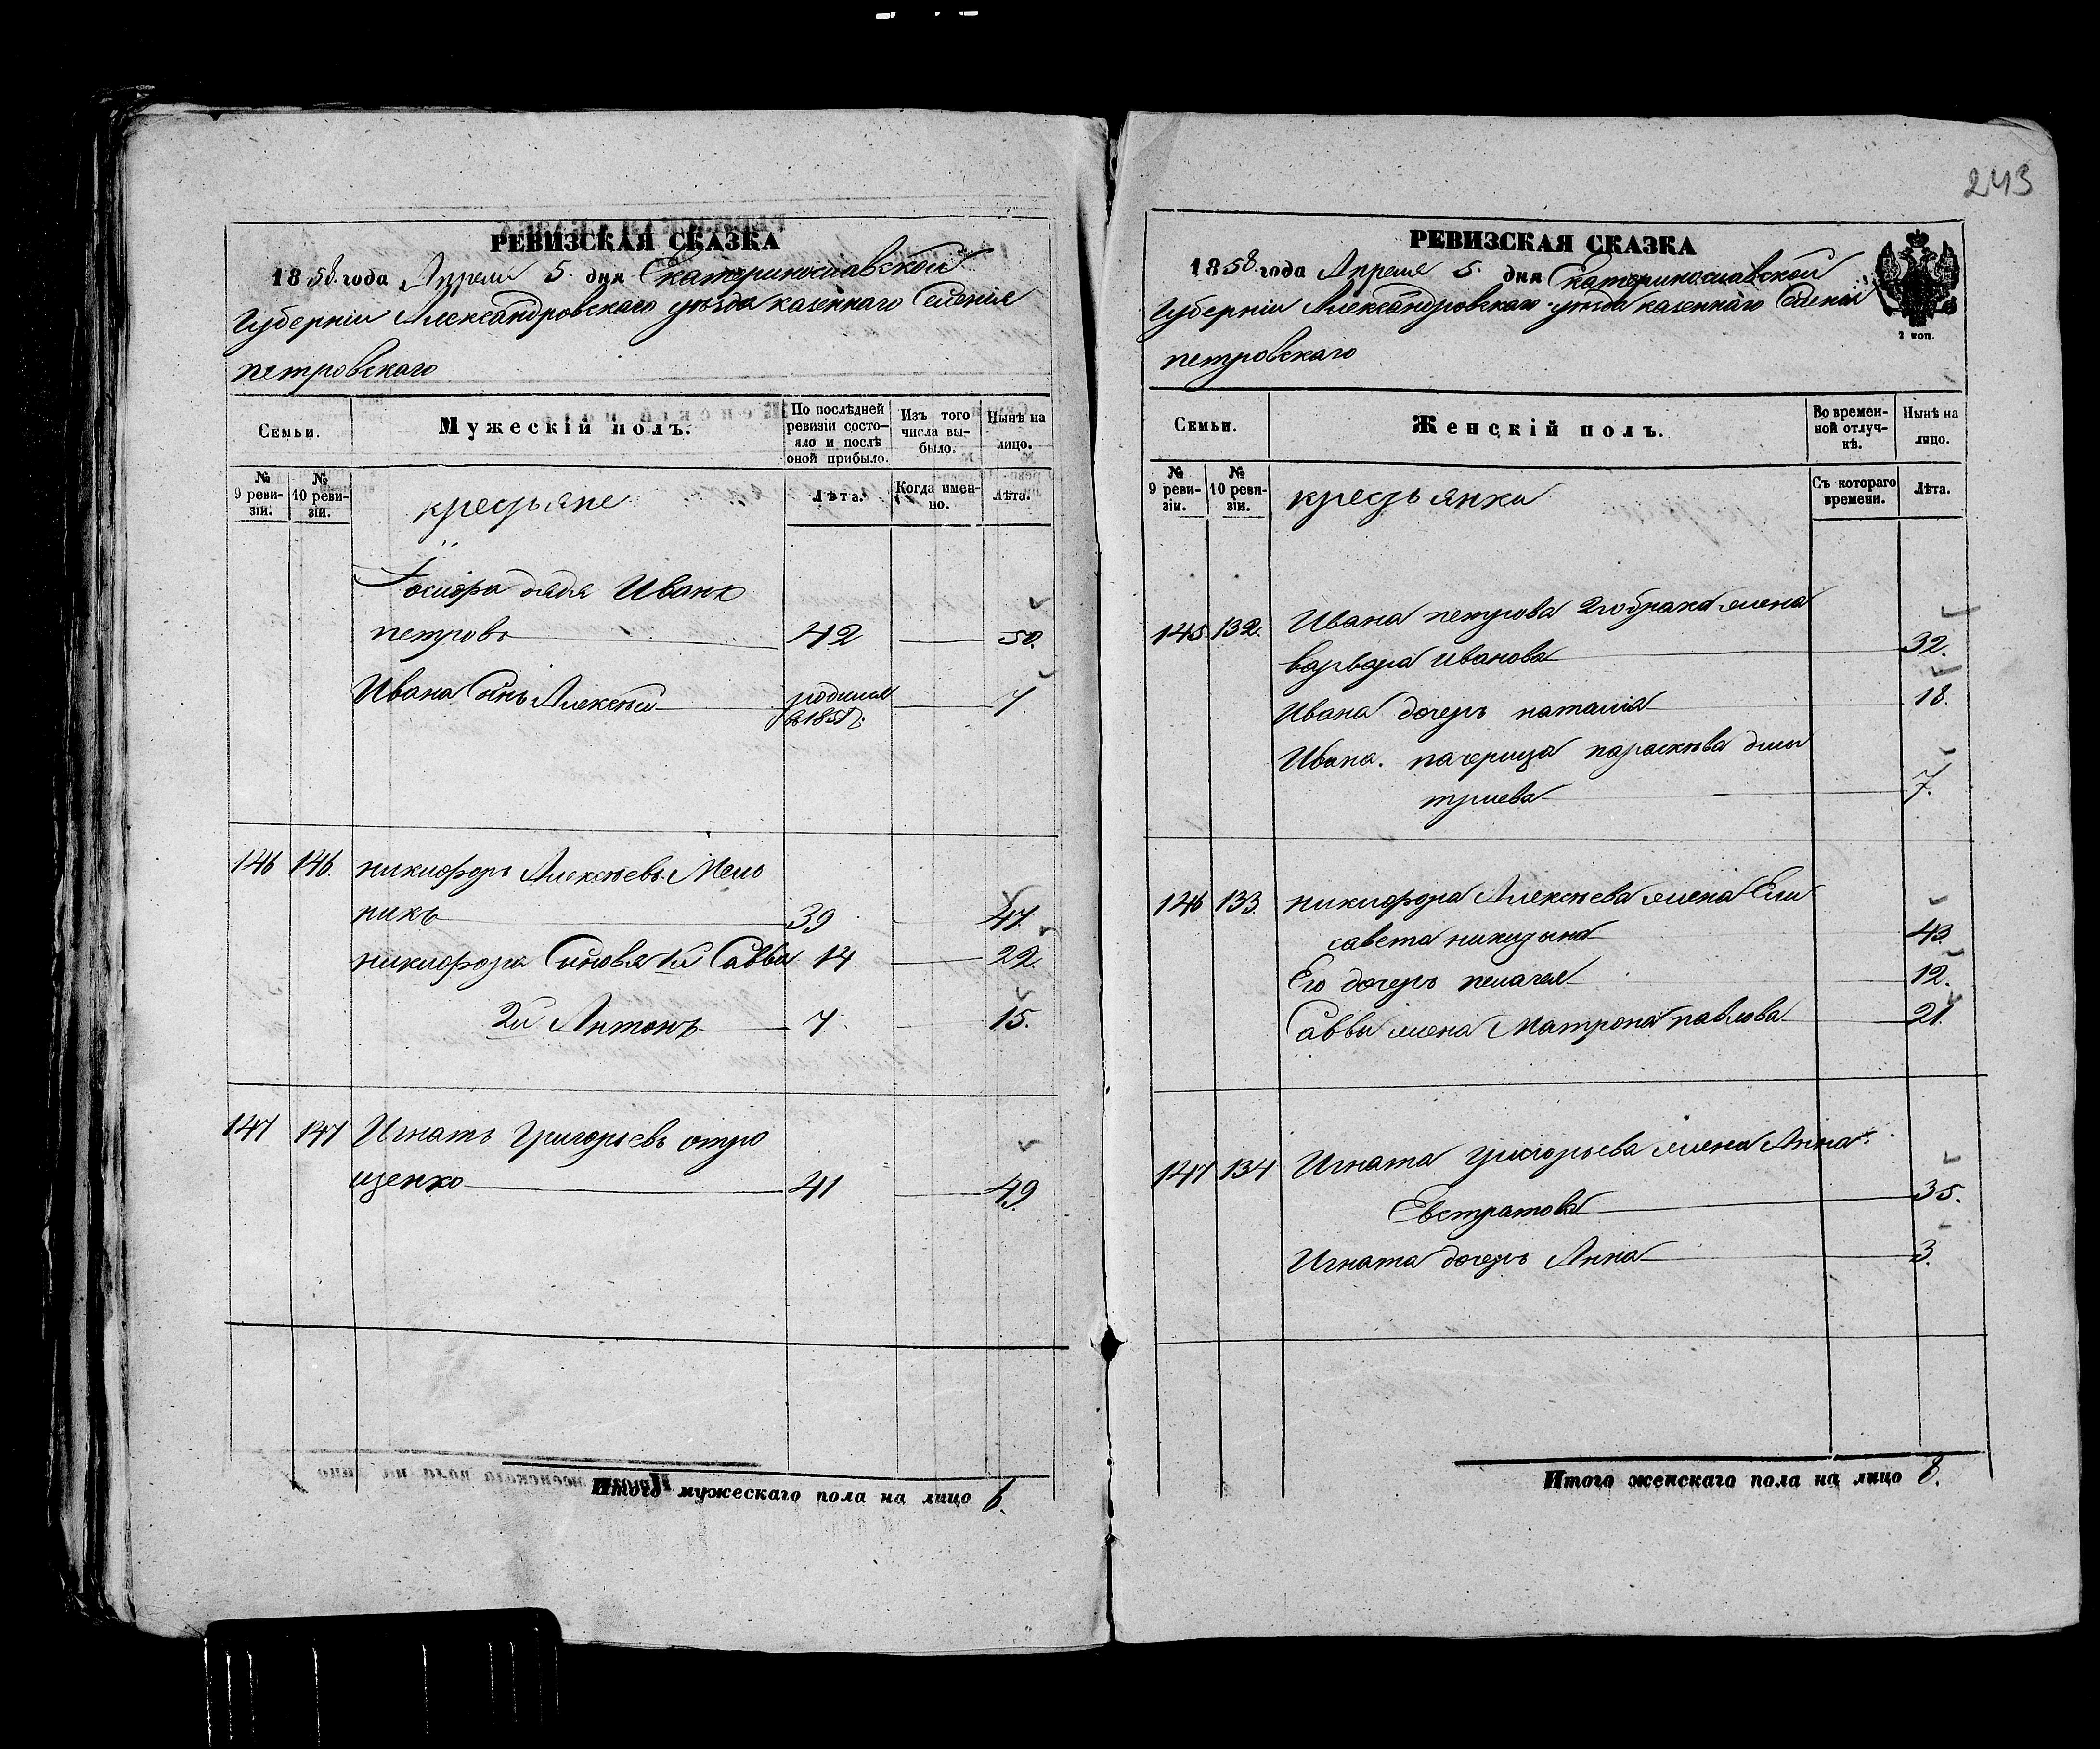 243
РЕВИЗСКАЯ СКАЗКА
1858 года Апреля 5. дня Екатеринославской
Губерніи Александровскаго уѣзда казеннаго Селенія
петровскаго
Семьи.
Мужескій полъ.
По послѣдней ревизіи состояло и послѣ оной прибыло.
Изъ того числа выбыло.
Нынѣ на лицо.
№ 9 ревизіи.
№ 10 ревизіи.
крестьяне
Лѣта.
Когда именно.
Лѣта.
дядя Иванъ
петровъ 42 50.
Ивана Сынъ Алексѣй родился в 1851 г. 7
146 146. никифоръ Алексѣевъ Мель
никъ 39 47.
никифора Синовя 1й Савва 14 22.
2й Антонъ 7 15.
147 147 Игнатъ Григорьевъ отро
щенко 41 49.
Итого мужескаго пола на лицо 6.
РЕВИЗСКАЯ СКАЗКА
1858. года Апреля 5. дня Екатеринославской
Губерніи Александровскаго уѣзда казеннаго Селенія
петровскаго
Семьи.
Женскій полъ.
Во временной отлучкѣ.
Нынѣ на лицо.
№ 9 ревизіи.
№ 10 ревизіи.
крестьянки
Съ котораго времени.
Лѣта.
145 132. Ивана петрова 2го брака жена
варвара иванова 32.
Ивана дочерь наталія 18.
Ивана. падчерица параскѣва дми
триева 7.
146 133. никифора Алексѣева жена Ели
савета никидына 43.
Его дочерь пелагея 12.
Саввы жена Матрона павлова 21.
147 134 Игната григорьева жена Анна
Евстратова 35.
Игната дочерь Анна 3.
Итого женскаго пола на лицо 8.